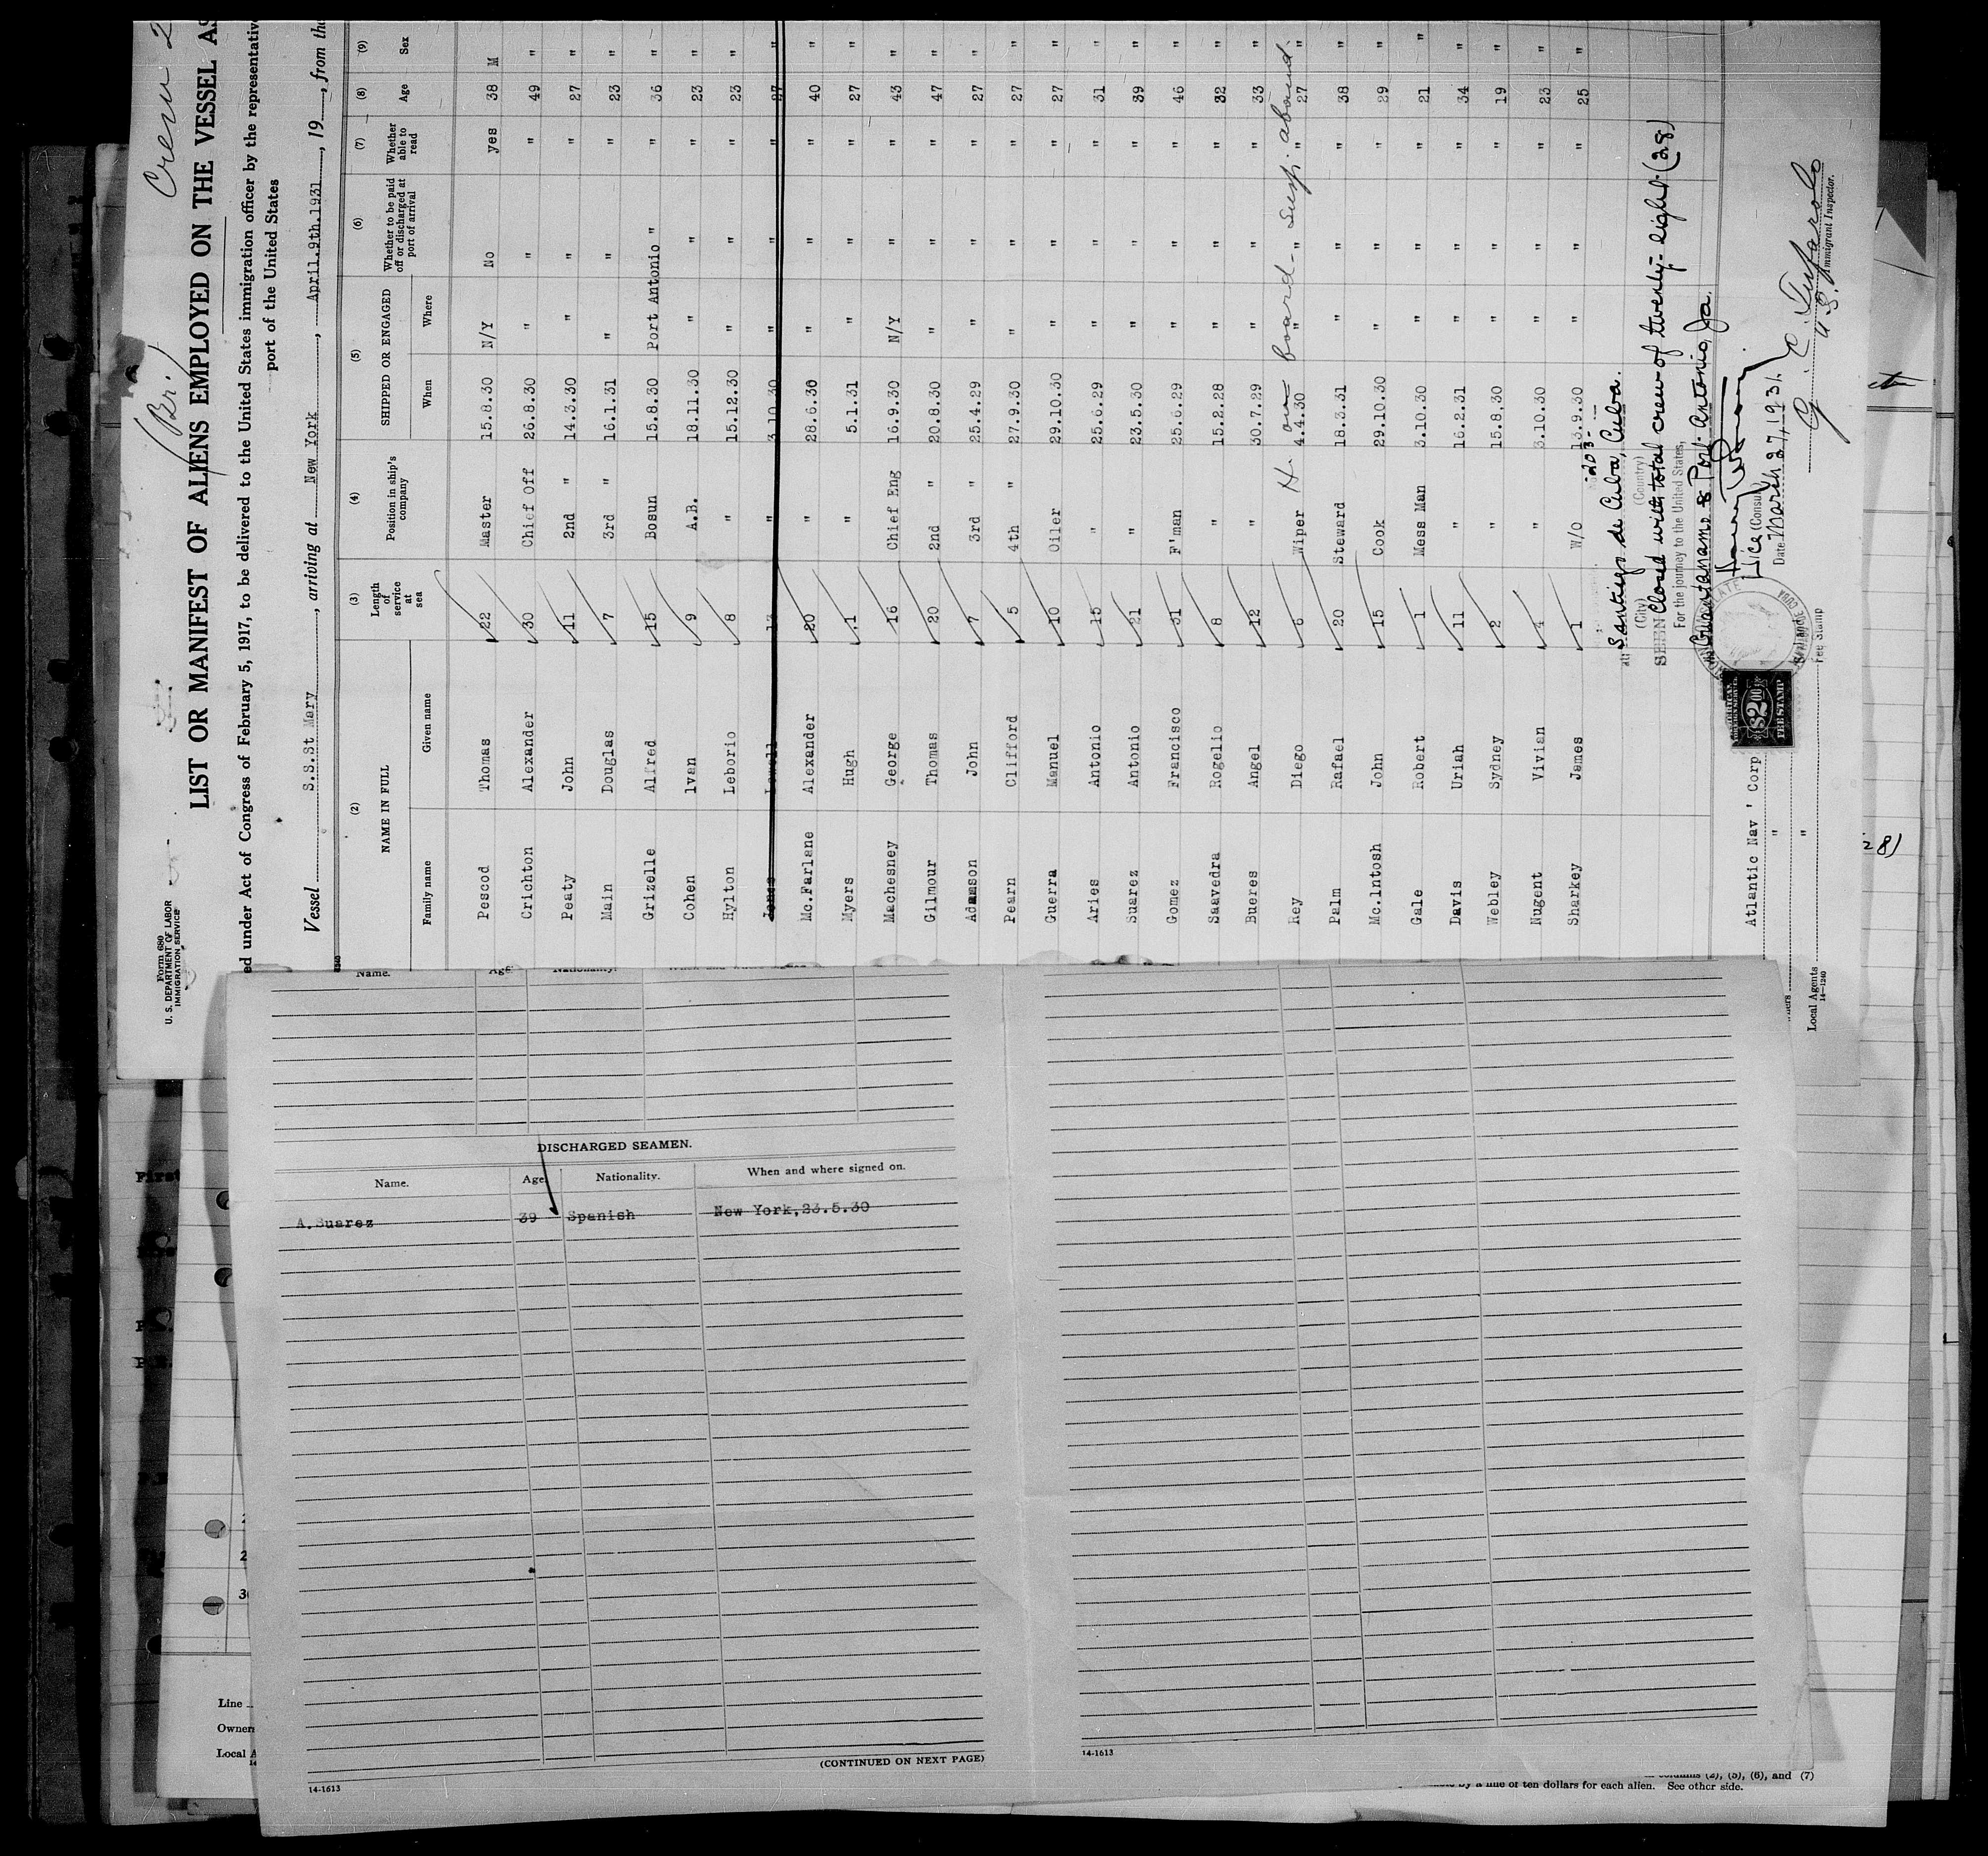 Crew 2
(Br.)
Form 680
U. S. DEPARTMENT OF LABOR
IMMIGRATION SERVICE
LIST OR MANIFEST OF ALIENS EMPLOYED ON THE VESSEL AS
ed under Act of Congress of February 5, 1917, to be delivered to the United States immigration officer by the representativ
port of the United States
Vessel S.S.St Mary, arriving at New York, April.9th.1931, 19, from the
(2) (3) (4) (5) (6) (7) (8) (9)
NAME IN FULL Length of service at sea Position in ship's company SHIPPED OR ENGAGED Whether to be paid off or discharged at port of arrival Whether able to read Age Sex
Family name Given name When Where
Pescod Thomas 22 Master 15.8.30 N/Y No yes 38 M
Crichton Alexander 30 Chief Off 26.8.30 " " " 49 "
Peaty John 11 2nd " 14.3.30 " " " 27 "
Main Douglas 7 3rd " 16.1.31 " " " 23 "
Grizelle Alfred 15 Bosun 15.8.30 Port Antonio " " 36 "
Cohen Ivan 9 A.B. 18.11.30 " " " 23 "
Hylton Leborio 8 " 15.12.30 " " " 23 "
Jones Lowell 13 " 3.10.30 " " " 27 "
Mc.Farlane Alexander 20 " 28.6.30 " " " 40 "
Myers Hugh 1 " 5.1.31 " " " 27 "
Machesney George 16 Chief Eng 16.9.30 N/Y " " 43 "
Gilmour Thomas 20 2nd " 20.8.30 " " " 47 "
Adamson John 7 3rd " 25.4.29 " " " 27 "
Pearn Clifford 5 4th " 27.9.30 " " " 27 "
Guerra Manuel 10 Oiler 29.10.30 " " " 27 "
Aries Antonio 15 " 25.6.29 " " " 31 "
Suarez Antonio 21 " 23.5.30 " " " 39 "
Gomez Francisco 31 F'man 25.6.29 " " " 46 "
Saavedra Rogelio 8 " 15.2.28 " " " 32 "
Bueres Angel 12 " 30.7.29 " " " 33 "
Rey Diego 6 Wiper 4.4.30 " " " 27 "
Palm Rafael 20 Steward 18.3.31 " " " 38 "
Mc.Intosh John 15 Cook 29.10.30 " " " 29 "
Gale Robert 1 Mess Man 3.10.30 " " " 21 "
Davis Uriah 11 " 16.2.31 " " " 34 "
Webley Sydney 2 " 15.8.30 " " " 19 "
Nugent Vivian 4 " 3.10.30 " " " 23 "
Sharkey James 1 W/O 13.9.30 " " " 25 "
203-
at: Santiago de Cuba, Cuba.
(City) (Country)
SEEN Closed with total crew of twenty-eight (28)
For the journey to the United States,
Guantanamo & Port Antonio, Ja.
Vice (Consul
Date March 27, 1931.
U.S. Immigrant Inspector.
$2.00
FEE STAMP
Fee Stamp
Atlantic Nav' Corp
"
"
Local Agents
14-1240
28)
Name. Age. Nationality.
DISCHARGED SEAMEN.
Name. Age. Nationality. When and where signed on.
A.Suarez 39 Spanish New York,23.5.30
(CONTINUED ON NEXT PAGE)
14-1613
14-1613
First
Line
Owners
Local A
columns (2), (5), (6), and (7)
by a fine of ten dollars for each alien. See other side.